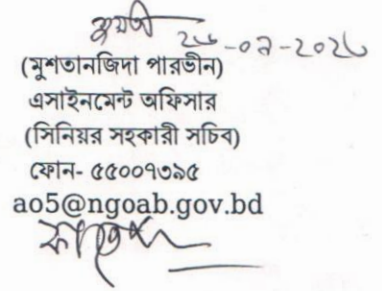 (মুশতানজিদা পারভীন)
এসাইনমেন্ট অফিসার
(সিনিয়র সহকারী সচিব)
ফোন- ৫৫০০৭৩৯৫
ao5@ngoab.gov.bd